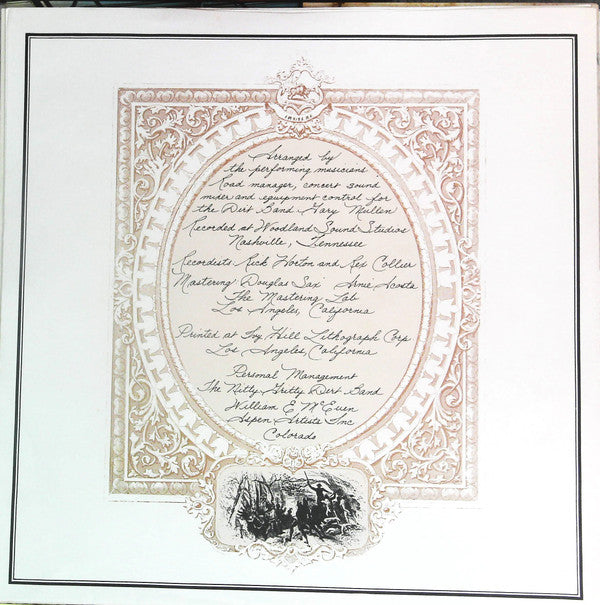 Arranged by
the performing musicians
Road manager, concert sound
mixer and equipment control for
the Dirt Band Gary Mullen
Recorded at Woodland Sound Studios
Nashville, Tennessee
Recordists Rick Horton and Rex Collier
Mastering Douglas Sax Arnie Acosta
The Mastering Lab
Los Angeles, California
Printed at Ivy Hill Lithograph Corp
Los Angeles, California
Personal Management
The Nitty Gritty Dirt Band
William E McEuen
Aspen Artists Inc
Colorado